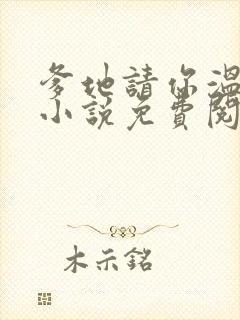 爹地請你溫
小說免費閱
木示銘